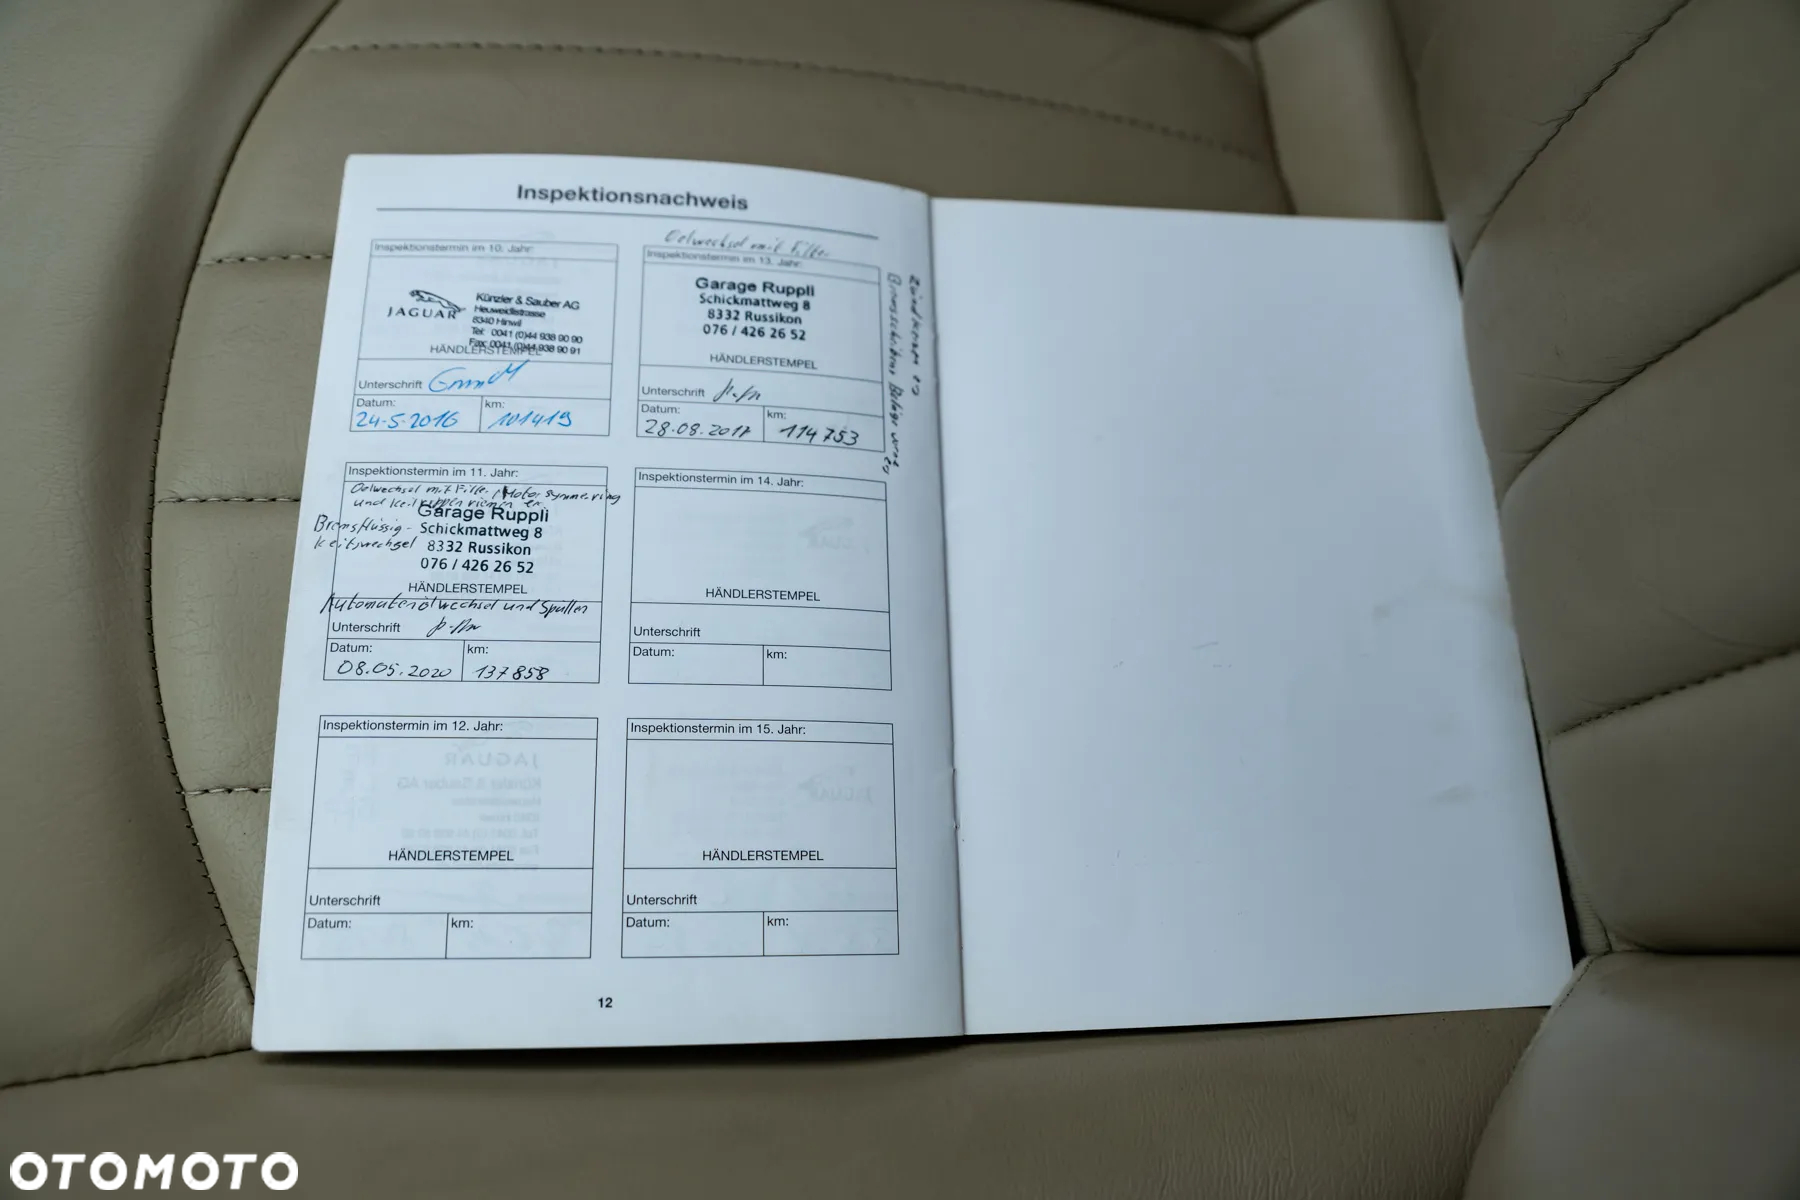 Inspektionsnachweis
Inspektionstermin im 10. Jahr:
JAGUAR
Künzler & Sauber AG
Heuweidlistrasse
8340 Hinwil
Tel: 0041 (0)44 938 90 90
Fax: 0041 (0)44 938 90 91
HÄNDLERSTEMPEL
Unterschrift
Datum:
24-5.2016
km:
101419
Inspektionstermin im 11. Jahr:
Oelwechsel mit Filter, Motor
und
Bremsflüssig-
keitswechsel
Garage Ruppli
Schickmattweg 8
8332 Russikon
076 / 426 26 52
HÄNDLERSTEMPEL
Automatenölwechsel und Spüllen
Unterschrift
Datum:
08.05.2020
km:
137858
Inspektionstermin im 12. Jahr:
HÄNDLERSTEMPEL
Unterschrift
Datum:
km:
Oelwechsel mit Filter
Inspektionstermin im 13. Jahr:
Garage Ruppli
Schickmattweg 8
8332 Russikon
076 / 426 26 52
HÄNDLERSTEMPEL
Unterschrift
Datum:
28.08.2017
km:
114753
Zündkerzen
Bremsscheiben Beläge
Inspektionstermin im 14. Jahr:
HÄNDLERSTEMPEL
Unterschrift
Datum:
km:
Inspektionstermin im 15. Jahr:
HÄNDLERSTEMPEL
Unterschrift
Datum:
km:
12
OTOMOTO